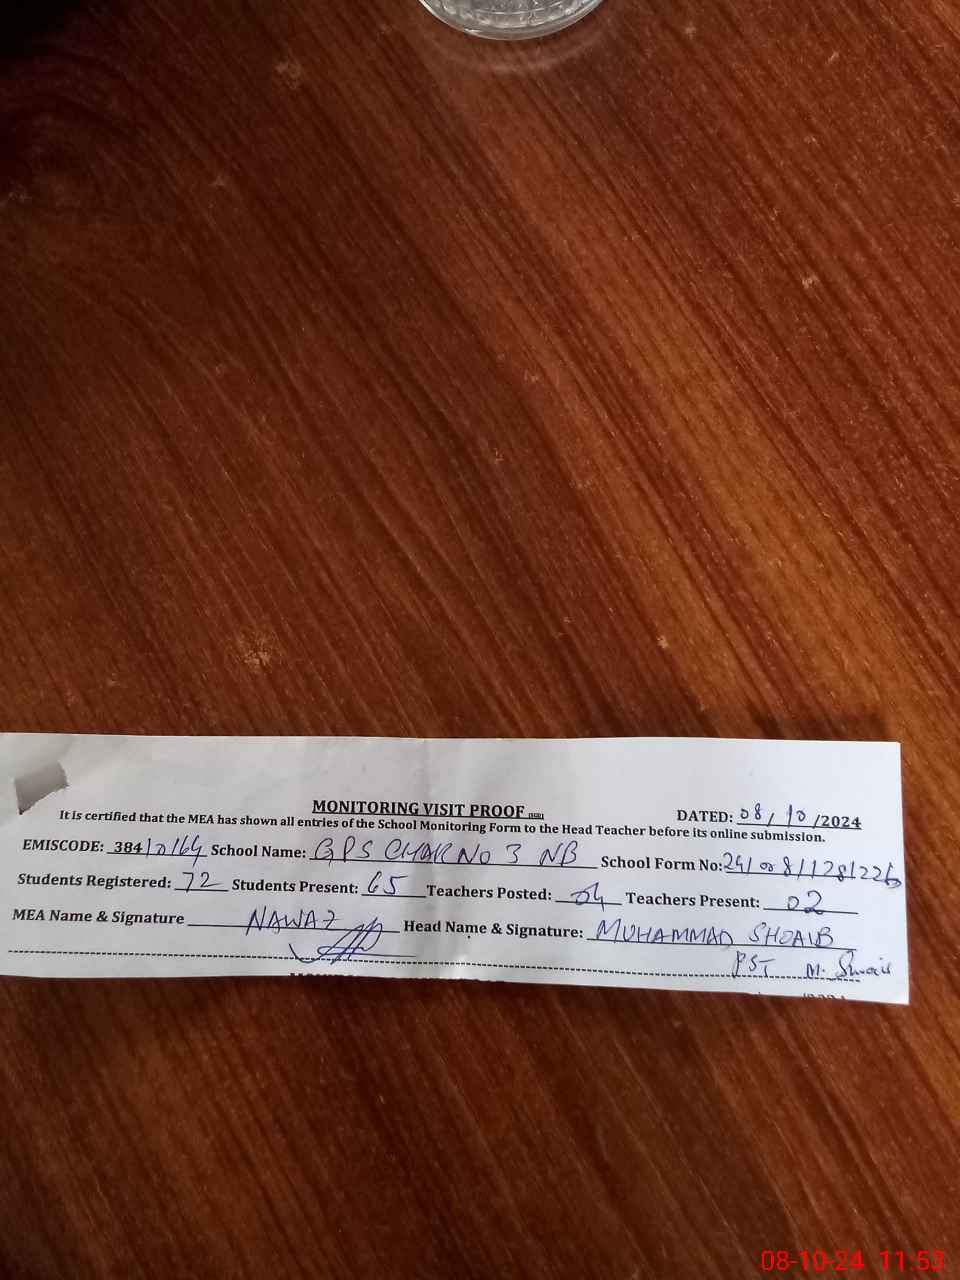 MONITORING VISIT PROOF
DATED: 08/10/2024
It is certified that the MEA has shown all entries of the School Monitoring Form to the Head Teacher before its online submission.
EMISCODE: 38410164 School Name: GPS CHAK NO 3 NB School Form No:
Students Registered: 72 Students Present: 65 Teachers Posted: 04 Teachers Present: 02
MEA Name & Signature NAWAZ Head Name & Signature: MUHAMMAD SHOAIB
PST M. Shoaib
08-10-24 11:53